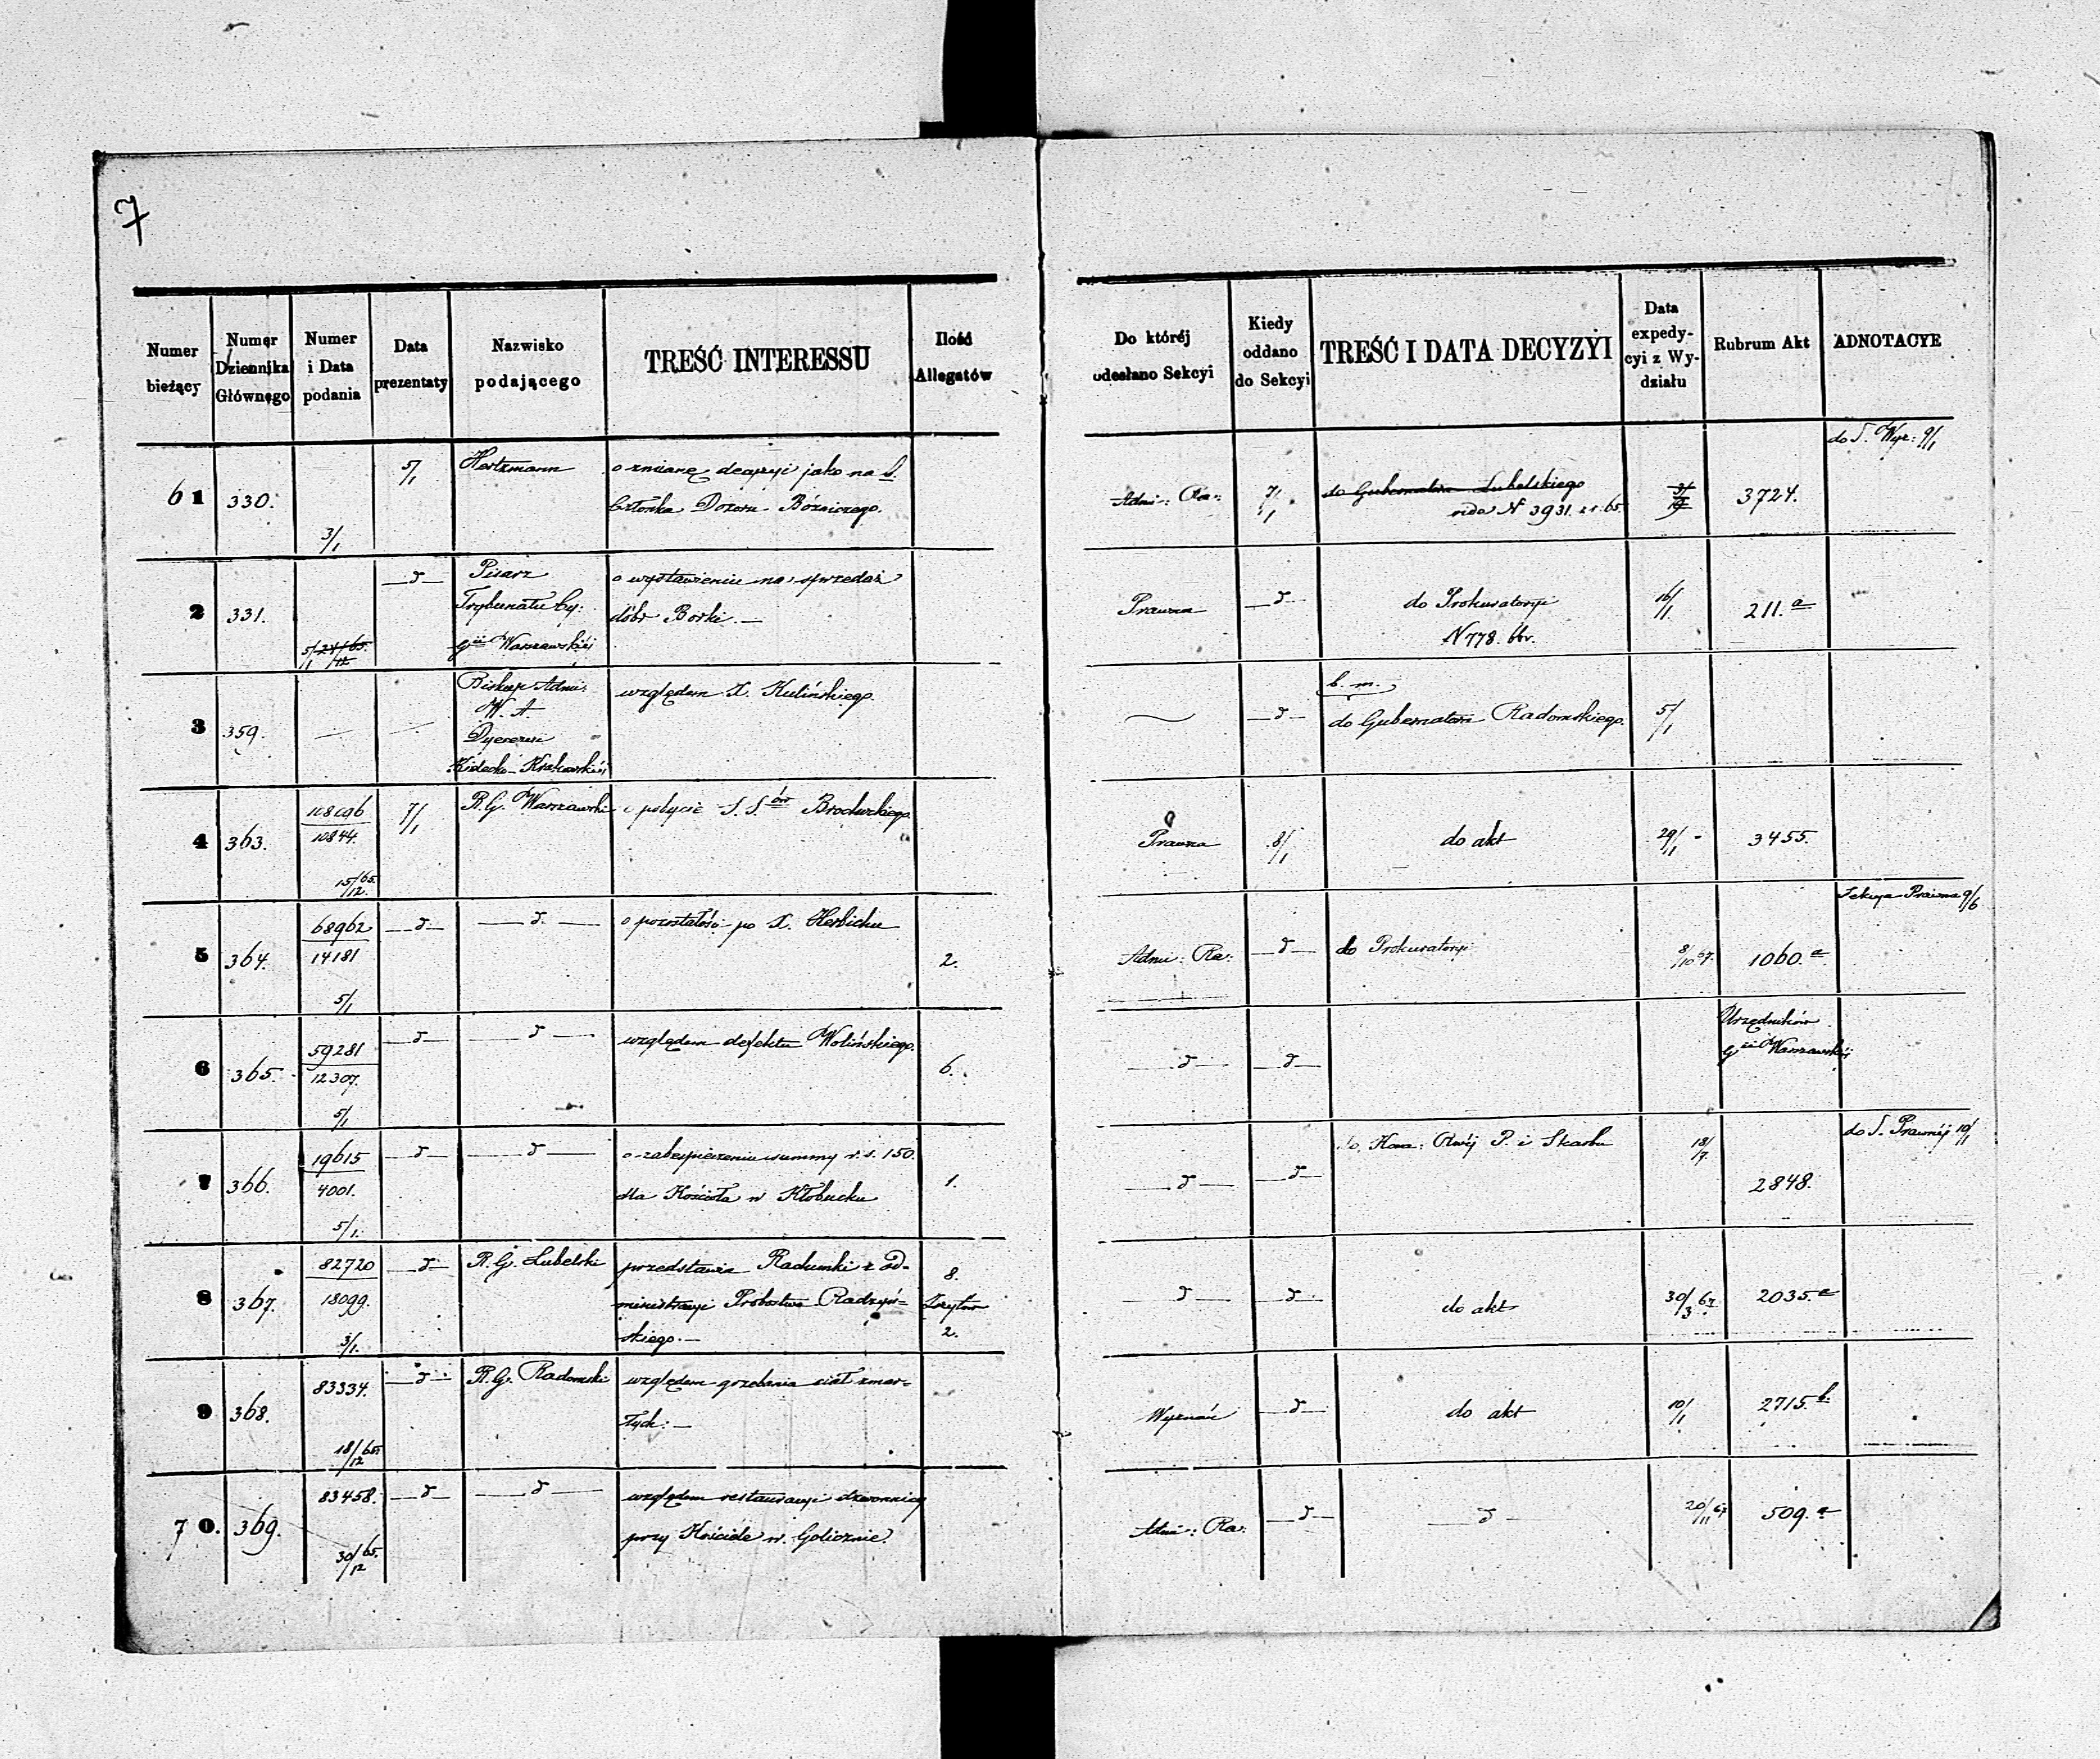 7
Numer bieżący | Numer Dziennika Głównego | Numer i Data podania | Data prezentaty | Nazwisko podającego | TREŚĆ INTERESSU | Ilość Allegatów | Do któréj odesłano Sekcyi | Kiedy oddano do Sekcyi | TREŚĆ I DATA DECYZYI | Data expedycyi z Wydziału | Rubrum Akt | ADNOTACYE
do S. Wyz: 9/1
61 330. 3/1 5/1 Hertzmann o zmianę decyzyi jako na
Członka Dozoru Bóżniczego.
Adm: Ra: 7/1 do Gubernatora Lubelskiego
vide N 3931. z r. 65 3724.
2 331. 5/1 24/65./12 —d— Pisarz
Trybunału Cy:
Gii Warszawskiéj
o wystawieniu na sprzedaż
dóbr Borki. —
Prawna —d— do Prokuratoryi
N 778. 66r. 16/1. 211. a
3 359. — — Biskup Admi:
W. A.
Dyecezii
Kielecko-Krakowskiéj
względem X. Kulińskiego.
—d— b. m.
do Gubernatora Radomskiego. 5/1
4 363. 108696
10844.
15/65./12. 7/1 R. G. Warszawski o pobycie S. S.ów
Prawna 8/1 do akt 29/1 3455.
Sekcya Prawna 9/6
5 364. 68962
14181
5/1 —d— —d.— o pozostałość po X. Herbicku 2.
Adm: Ra: —d— do Prokuratoryi 8/10 67. 1060. a
6 365. 59281
12307.
5/1 —d— —d— względem defektu Wolińskiego. 6.
—d— —d— Urzędników
Gii Warszawskiéj
7 366. 19615
4001.
5/1. —d— —d— o zabezpieczeniu summy r. s. 150.
dla Kościoła w Kłobucku 1.
—d— —d— do Kom: P. i Skarbu 18/7. 2848.
do S. Prawnéj 10/1
8 367. 82720
18099.
3/1. —d— R. G. Lubelski przedstawia Rachunki z ad-
ministracyi Probostwa Radzyń-
skiego. — 8.
2.
—d— —d— do akt 30/3 67. 2035. a
9 368. 83334.
18/65/12 —d— R. G. Radomski względem grzebania ciał zmar-
łych: —
Wyznań —d— do akt 10/1 2715. b.
70. 369. 83458.
30/65./12 —d— —d— względem restauracyi dzwonnicy
przy Kościele w
Adm: Ra: —d— —d— 20/11 67 509. a